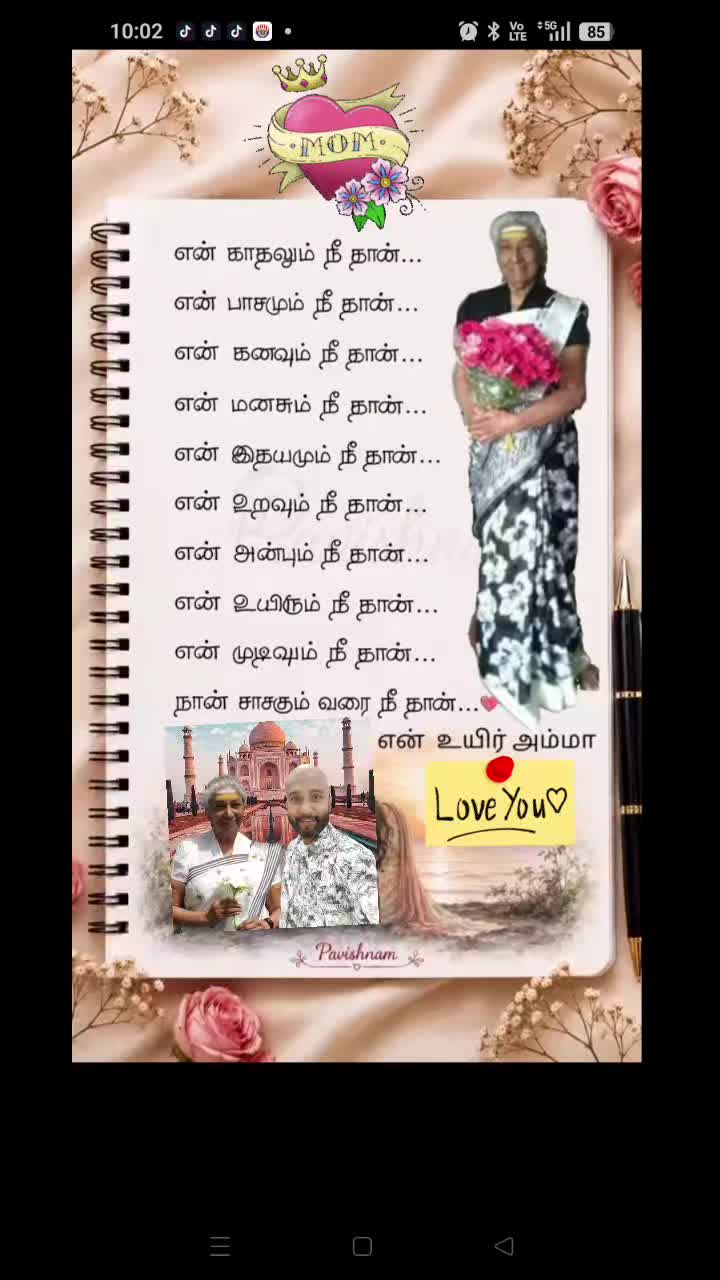 10:02
Vo LTE 5G 85
MOM
என் காதலும் நீ தான்...
என் பாசமும் நீ தான்...
என் கனவும் நீ தான்...
என் மனசும் நீ தான்...
என் இதயமும் நீ தான்...
என் உறவும் நீ தான்...
என் அன்பும் நீ தான்...
என் உயிரும் நீ தான்...
என் முடிவும் நீ தான்...
நான் சாசகும் வரை நீ தான்...
என் உயிர் அம்மா
Love You
Pavishnam